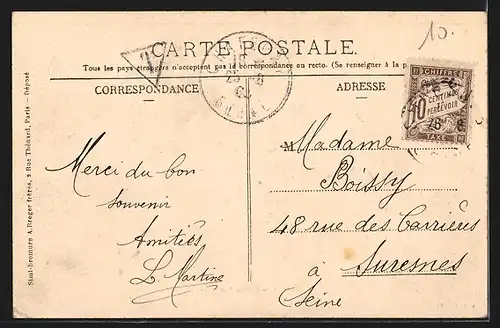 10.
CARTE POSTALE.
Tous les pays étrangers n'acceptent pas la correspondance au recto. (Se renseigner à la p
CORRESPONDANCE
ADRESSE
T
25
CHIFFRE
10 CENTIMES
À
PERCEVOIR
TAXE
Merci du bon
souvenir
Amitiés
L. Martine
M Madame
Boissy
48 rue des Carrières
à Suresnes
Seine
Simi-bromure A. Breger frères, 9 Rue Thénard, Paris — Déposé